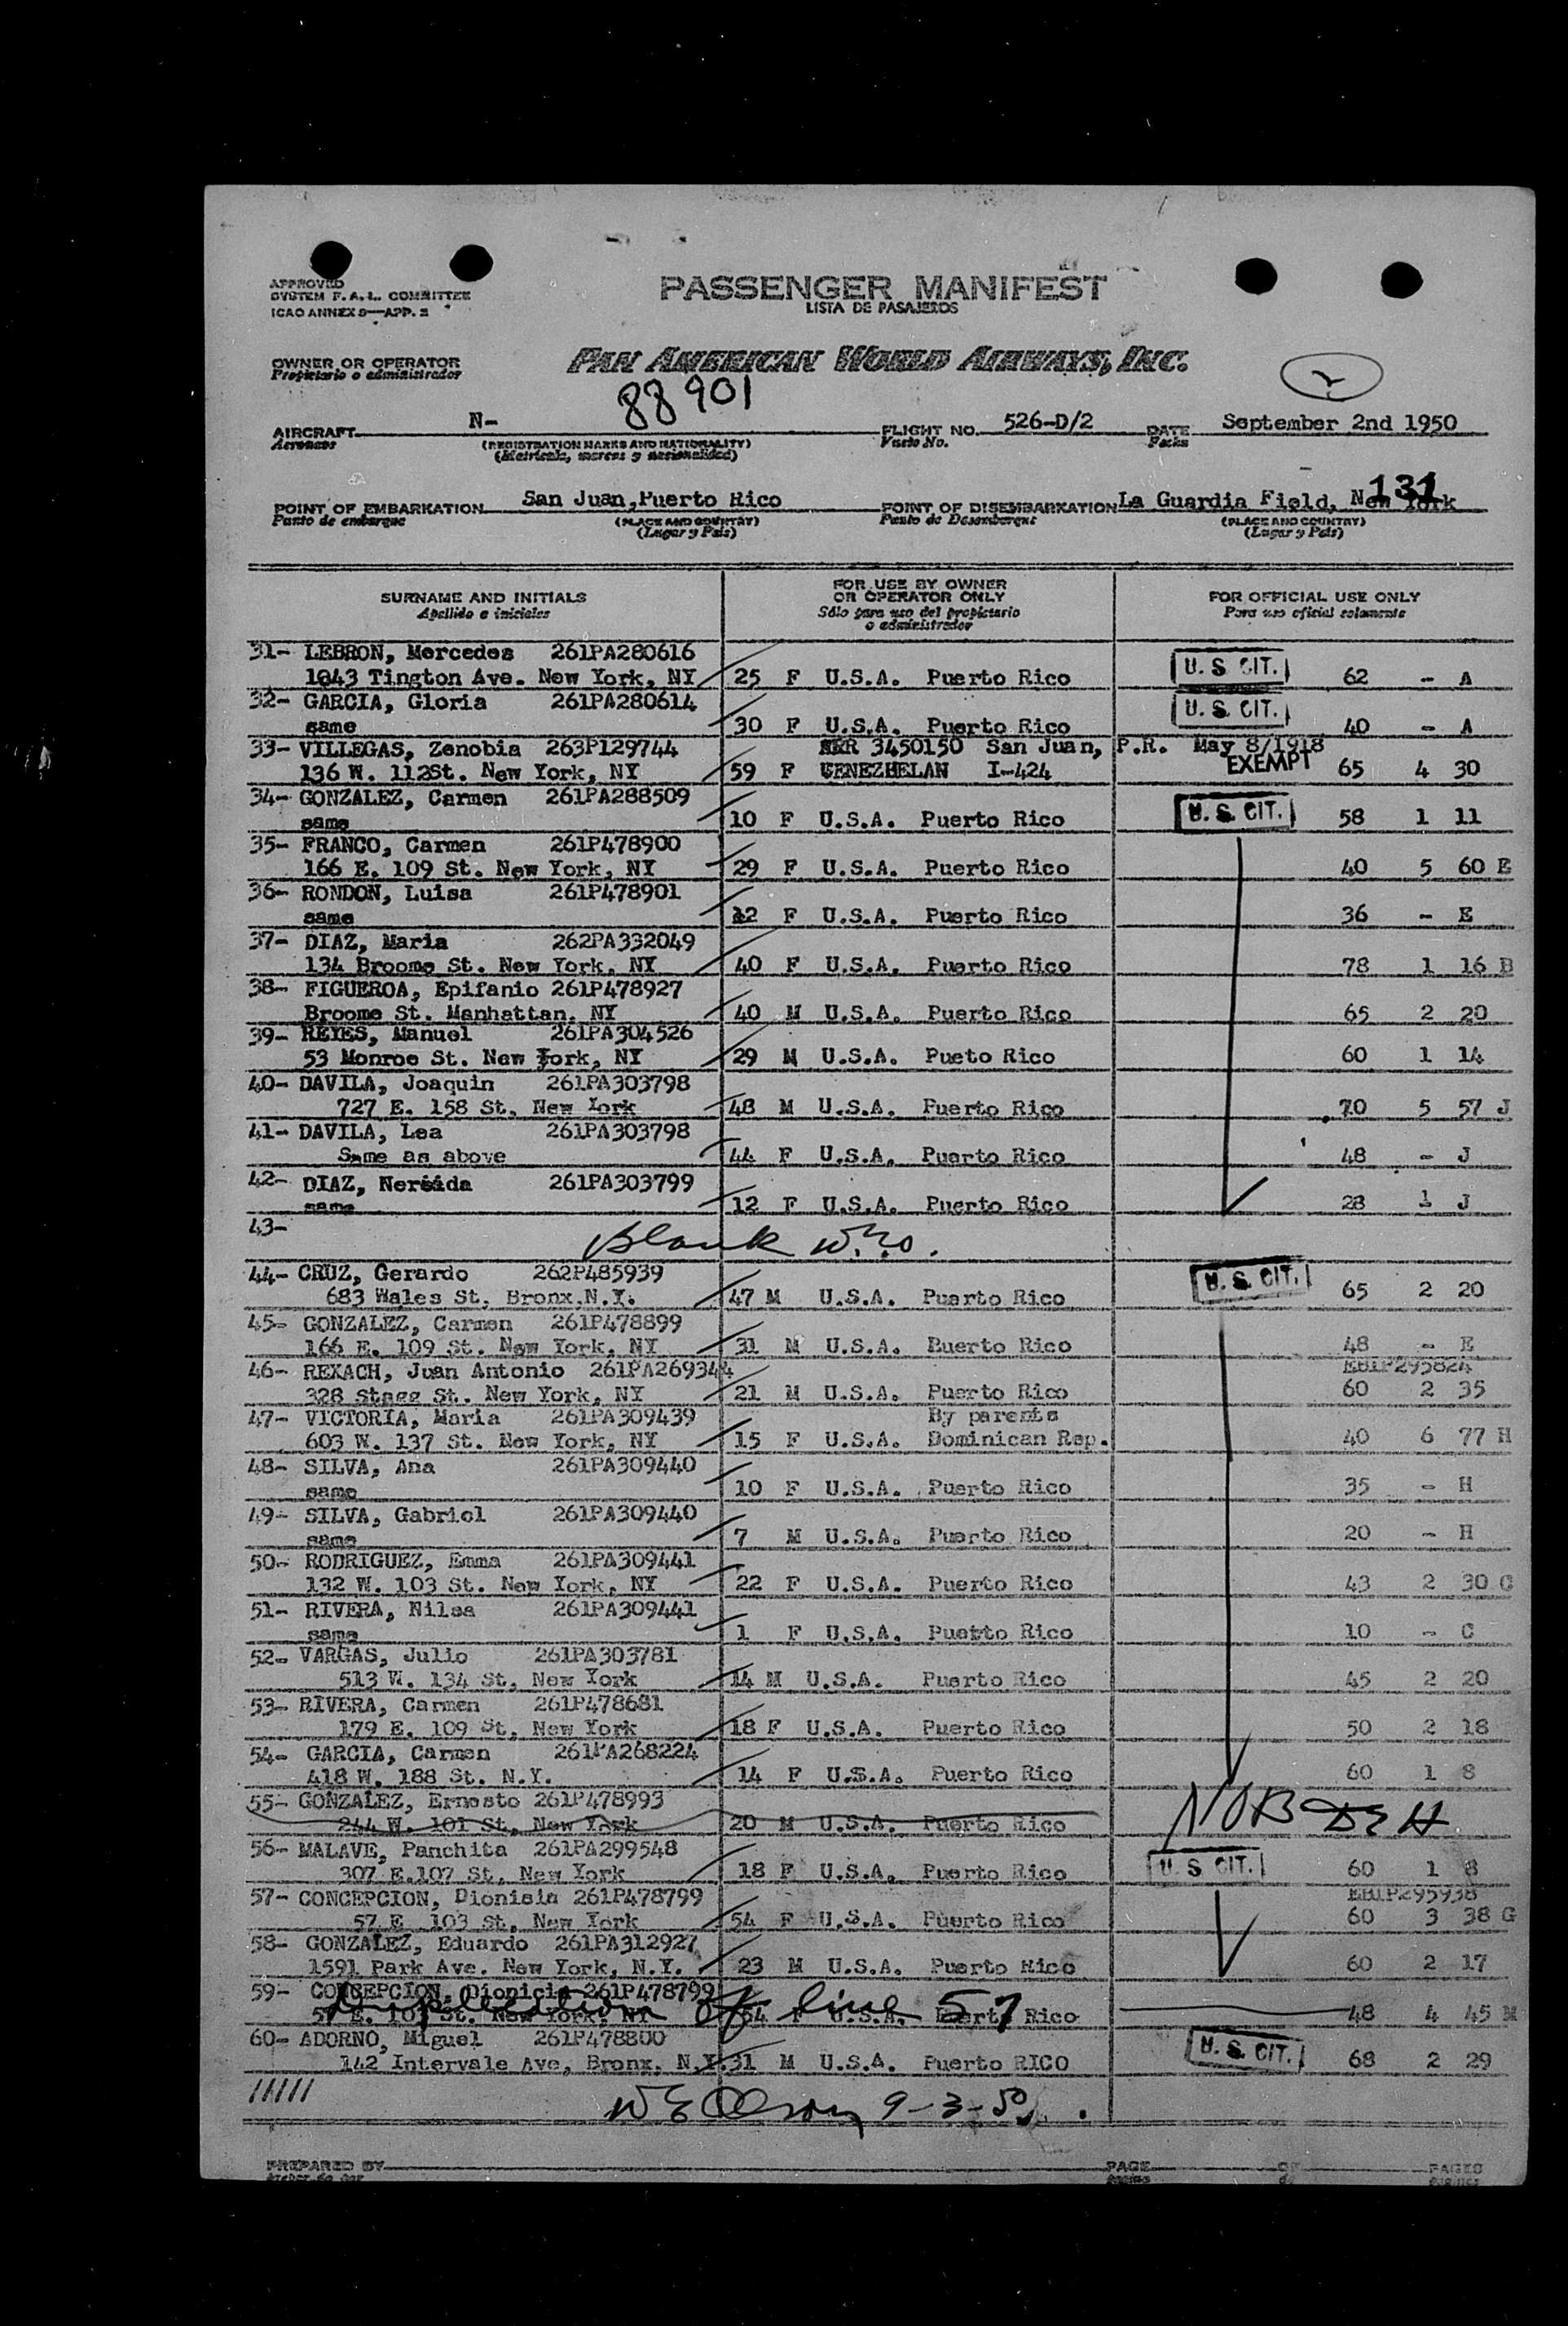 APPROVED
SYSTEM F.A.L. COMMITTEE
ICAO ANNEX 9—APP. 2
PASSENGER MANIFEST
LISTA DE PASAJEROS
OWNER OR OPERATOR
Propietario o administrador
PAN AMERICAN WORLD AIRWAYS, INC.
2
AIRCRAFT N- 88901 FLIGHT NO. 526-D/2 DATE September 2nd 1950
Aeronave (REGISTRATION MARKS AND NATIONALITY) Vuelo No. Fecha
(Matrícula, marcas y nacionalidad)
131
POINT OF EMBARKATION San Juan,Puerto Rico POINT OF DISEMBARKATION La Guardia Field, New York
Punto de embarque (PLACE AND COUNTRY) Punto de Desembarque (PLACE AND COUNTRY)
(Lugar y País) (Lugar y País)
SURNAME AND INITIALS FOR USE BY OWNER OR OPERATOR ONLY FOR OFFICIAL USE ONLY
Apellido e iniciales Sólo para uso del propietario o administrador Para uso oficial solamente
31- LEBRON, Mercedes 261PA280616 U.S CIT.
1043 Tington Ave. New York, NY 25 F U.S.A. Puerto Rico 62 - A
32- GARCIA, Gloria 261PA280614 U.S. CIT.
same 30 F U.S.A. Puerto Rico 40 - A
33- VILLEGAS, Zenobia 263P129744 3450150 San Juan, P.R. May 8/1918
136 W. 112St. New York, NY 59 F VENEZHELAN I-424 EXEMPT 65 4 30
34- GONZALEZ, Carmen 261PA288509 U.S. CIT.
same 10 F U.S.A. Puerto Rico 58 1 11
35- FRANCO, Carmen 261P478900
166 E. 109 St. New York, NY 29 F U.S.A. Puerto Rico 40 5 60 E
36- RONDON, Luisa 261P478901
same 12 F U.S.A. Puerto Rico 36 - E
37- DIAZ, Maria 262PA332049
134 Broome St. New York, NY 40 F U.S.A. Puerto Rico 78 1 16 B
38- FIGUEROA, Epifanio 261P478927
Broome St. Manhattan. NY 40 M U.S.A. Puerto Rico 65 2 20
39- REYES, Manuel 261PA304526
53 Monroe St. New York, NY 29 M U.S.A. Pueto Rico 60 1 14
40- DAVILA, Joaquin 261PA303798
727 E. 158 St. New York 48 M U.S.A. Puerto Rico 70 5 57 J
41- DAVILA, Lea 261PA303798
Same as above 44 F U.S.A. Puerto Rico 48 - J
42- DIAZ, Nereida 261PA303799
same 12 F U.S.A. Puerto Rico 28 1 J
43- Blank
44- CRUZ, Gerardo 262P485939 U.S. CIT.
683 Wales St. Bronx.N.Y. 47 M U.S.A. Puerto Rico 65 2 20
45- GONZALEZ, Carmen 261P478899
166 E. 109 St. New York, NY 31 M U.S.A. Buerto Rico 48 - E
46- REXACH, Juan Antonio 261PA269344 EBIP295824
328 Stagg St. New York, NY 21 M U.S.A. Puerto Rico 60 2 35
47- VICTORIA, Maria 261PA309439 By parents
603 W. 137 St. New York, NY 15 F U.S.A. Dominican Rep. 40 6 77 H
48- SILVA, Ana 261PA309440
same 10 F U.S.A. Puerto Rico 35 - H
49- SILVA, Gabriel 261PA309440
same 7 M U.S.A. Puerto Rico 20 - H
50- RODRIGUEZ, Emma 261PA309441
132 W. 103 St. New York, NY 22 F U.S.A. Puerto Rico 43 2 30 C
51- RIVERA, Nilsa 261PA309441
same 1 F U.S.A. Puetto Rico 10 - C
52- VARGAS, Julio 261PA303781
513 W. 134 St. New York 14 M U.S.A. Puerto Rico 45 2 20
53- RIVERA, Carmen 261P478681
179 E. 109 St. New York 18 F U.S.A. Puerto Rico 50 2 18
54- GARCIA, Carmen 261PA268224
418 W. 188 St. N.Y. 14 F U.S.A. Puerto Rico 60 1 8
55- GONZALEZ, Ernesto 261P478993
244 W. 101 St. New York 20 M U.S.A. Puerto Rico NOB
56- MALAVE, Panchita 261PA299548
307 E.107 St. New York 18 F U.S.A. Puerto Rico U.S CIT. 60 1 8
57- CONCEPCION, Dionisia 261P478799 EBIP295938
57 E. 103 St. New York 54 F U.S.A. Puerto Rico 60 3 38 G
58- GONZALEZ, Eduardo 261PA312927
1591 Park Ave. New York, N.Y. 23 M U.S.A. Puerto Rico 60 2 17
59- CONCEPCION, Dionicia 261P478799
Duplication of line 57
57 E. 103 St. New York, NY 54 F U.S.A. Puerto Rico 48 4 45 M
60- ADORNO, Miguel 261P478800 U.S. CIT.
142 Intervale Ave, Bronx. N.Y. 31 M U.S.A. Puerto RICO 68 2 29
//////
W E Olson 9-3-50
PREPARED BY PAGE OF PAGES